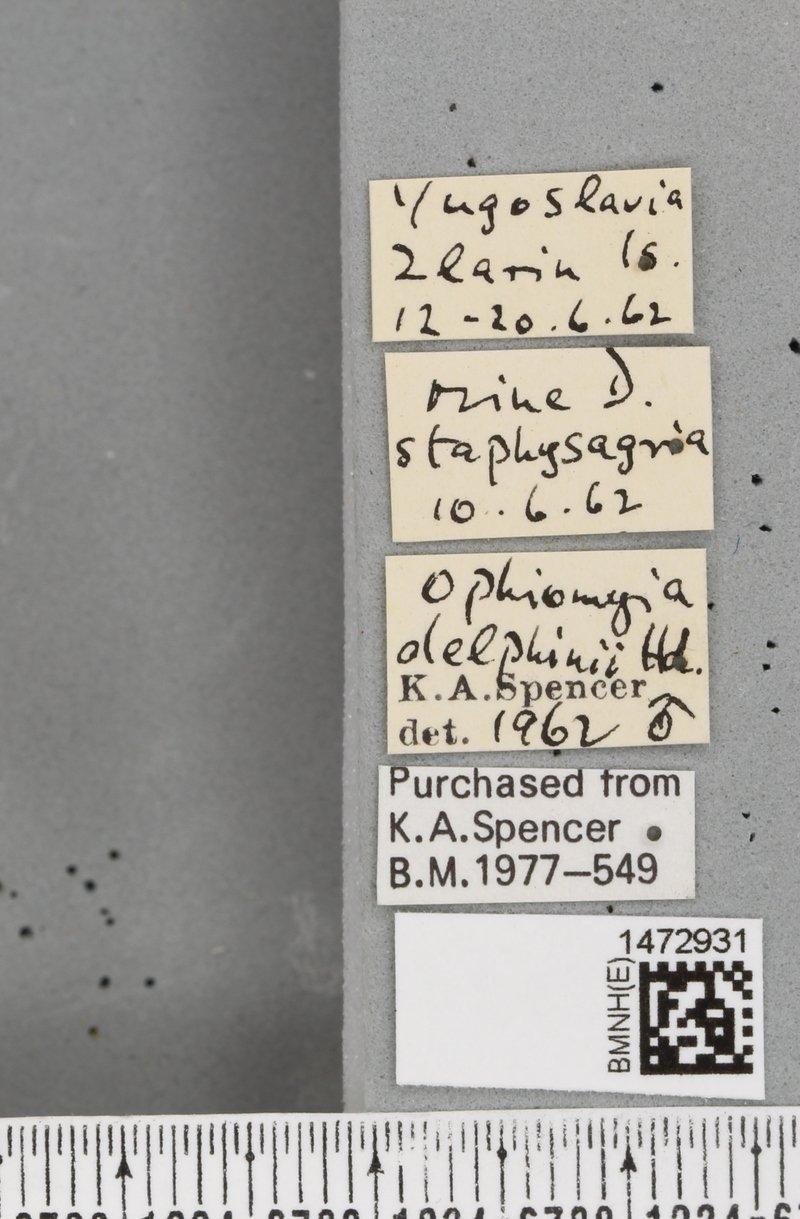 Yugoslavia
Zlarin Is.
12-20.6.62
mine D.
staphysagria
10.6.62
Ophiomyia
delphinii Hd.
K.A.Spencer
det. 1962 ♂
Purchased from
K.A.Spencer
B.M.1977–549
1472931
BMNH(E)